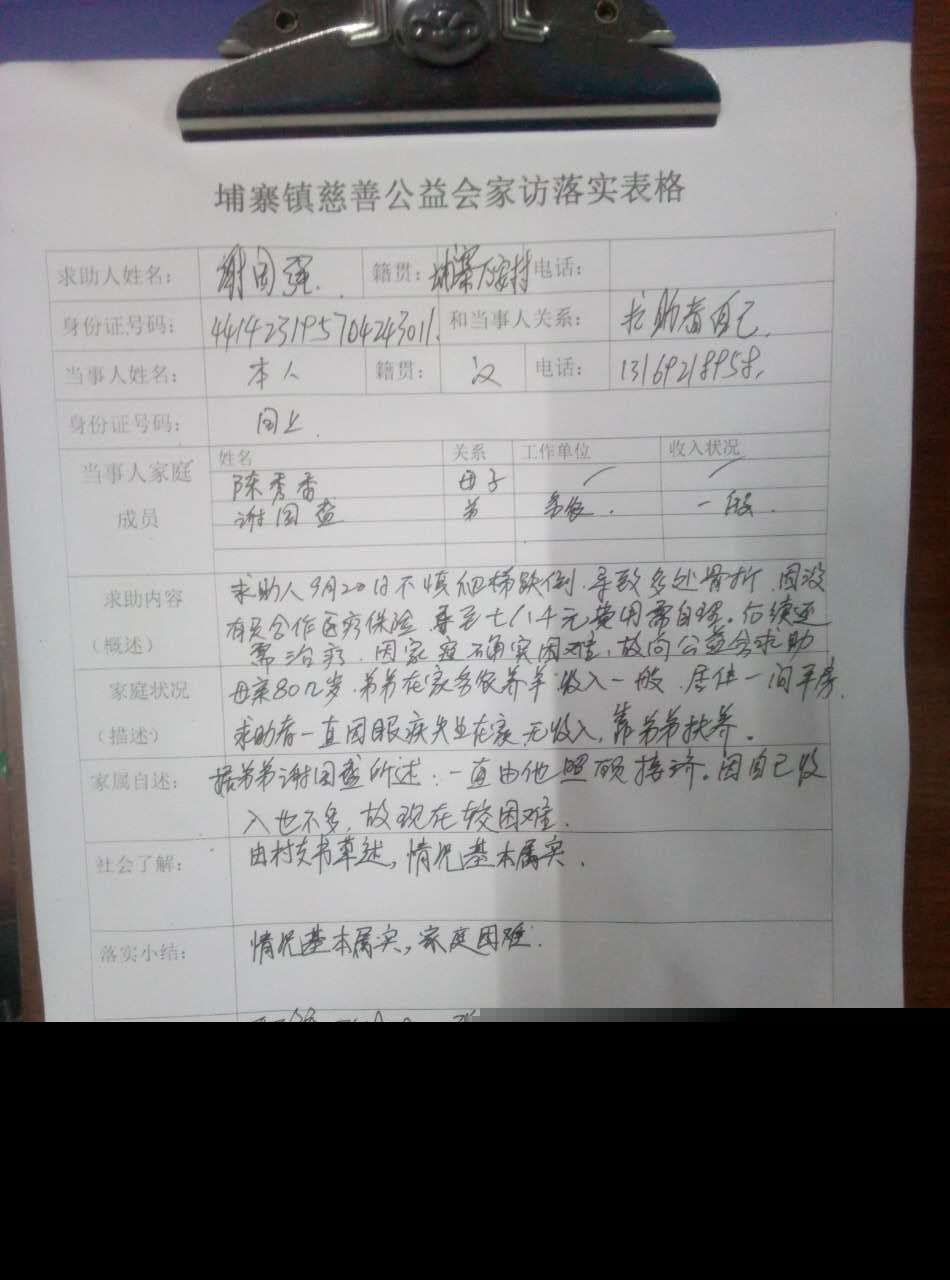 埔寨镇慈善公益会家访落实表格
求助人姓名: 谢国强. 籍贯: 埔寨万安村 电话:
身份证号码: 441423195704243011. 和当事人关系: 求助者自己.
当事人姓名: 本人 籍贯: 汉 电话: 13169218958.
身份证号码: 同上.
当事人家庭成员 姓名 关系 工作单位 收入状况
陈秀香 母子 / /
谢国盛 弟 务农. 一般.
求助内容 求助人9月20日不慎爬梯跌倒.导致多处骨折.因没
(概述) 有买合作医疗保险.导至七八千元费用需自理。后续还
需治疗.因家庭确实困难,故向公益会求助
家庭状况 母亲80几岁.弟弟在家务农养羊.收入一般.居住一间平房.
(描述) 求助者一直因眼疾失业在家.无收入,靠弟弟扶养。
家属自述: 据弟弟谢国盛所述:一直由他照顾接济。因自己收
入也不多,故现在较困难.
社会了解: 由村支书草述,情况基本属实.
落实小结: 情况基本属实,家庭困难.